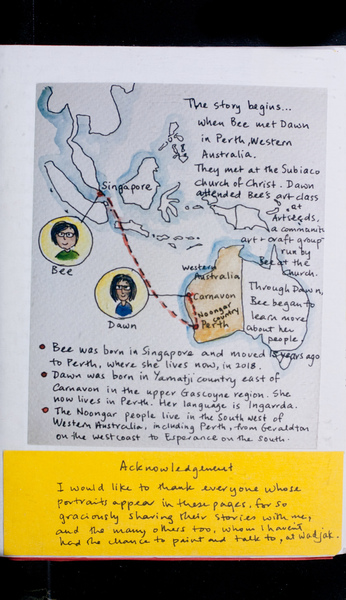 The story begins...
when Bee met Dawn
in Perth, Western
Australia.
They met at the Subiaco
Church of Christ. Dawn
attended Bee's art class
at
Artseeds,
a community
art + craft group
run by
Bee at the
church.
Through Dawn,
Bee began to
learn more
about her
people.
Singapore
Bee
Dawn
Western
Australia
Carnavon
Noongar
country
Perth
Bee was born in Singapore and moved 18 years ago
to Perth, where she lives now, in 2018.
Dawn was born in Yamatji country east of
Carnavon in the upper Gascoyne region. She
now lives in Perth. Her language is Ingarrda.
The Noongar people live in the South west of
Western Australia, including Perth, from Geraldton
on the west coast to Esperance on the south.
Acknowledgement
I would like to thank everyone whose
portraits appear in these pages, for so
graciously sharing their stories with me,
and the many others too, whom I haven't
had the chance to paint and talk to, at Wadjak.